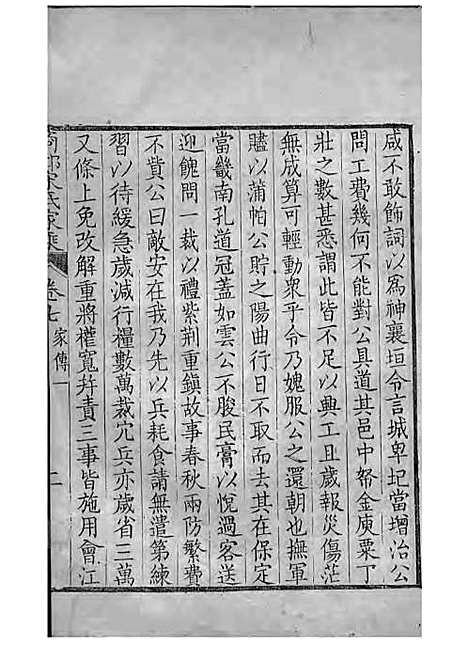 咸不敢飾詞以爲神襄垣令言城卑圮當增治公
問工費幾何不能對公具道其邑中帑金庾粟丁
壯之數甚悉謂此皆不足以興工且歲報災傷茫
無成算可輕動衆乎令乃媿服公之還朝也撫軍
贐以蒲帕公貯之陽曲行日不取而去其在保定
當畿南孔道冠蓋如雲公不朘民膏以悅過客送
迎餽問一裁以禮紫荆重鎭故事春秋兩防繁費
不貲公曰敵安在我乃先以兵耗食請無遣第練
習以待緩急歲減行糧數萬裁冗兵亦歲省三萬
又條上免改解重將權寬幷責三事皆施用會江
宋氏家乘 卷七 家傳一 二